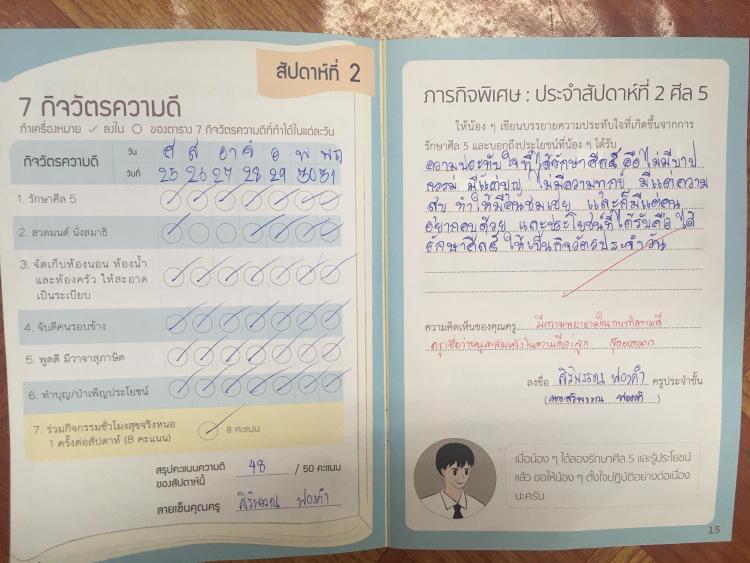 สัปดาห์ที่ 2
7 กิจวัตรความดี
ทำเครื่องหมาย ✓ ลงใน ○ ของตาราง 7 กิจวัตรความดีที่ทำได้ในแต่ละวัน
กิจวัตรความดี
วัน ศ ส อา จ อ พ พฤ
วันที่ 25 26 27 28 29 30 31
1. รักษาศีล 5
2. สวดมนต์ นั่งสมาธิ
3. จัดเก็บห้องนอน ห้องน้ำ
และห้องครัว ให้สะอาด
เป็นระเบียบ
4. จับดีคนรอบข้าง
5. พูดดี มีวาจาสุภาษิต
6. ทำบุญ/บำเพ็ญประโยชน์
7. ร่วมกิจกรรมชั่วโมงสุขจริงหนอ
1 ครั้งต่อสัปดาห์ (8 คะแนน)
8 คะแนน
สรุปคะแนนความดี
ของสัปดาห์นี้
48 / 50 คะแนน
ลายเซ็นคุณครู สิริพรรณ ฟองคำ
ภารกิจพิเศษ : ประจำสัปดาห์ที่ 2 ศีล 5
ให้น้อง ๆ เขียนบรรยายความประทับใจที่เกิดขึ้นจากการ
รักษาศีล 5 และบอกถึงประโยชน์ที่น้อง ๆ ได้รับ
ความประทับใจที่ได้รักษาศีล5 คือ ไม่มีบาป
กรรม มีแต่บุญ ไม่มีความทุกข์ มีแต่ความ
สุข ทำให้มีคนชมเชย และก็มีแต่คน
อยากคบด้วย และประโยชน์ที่ได้รับคือ ได้
รักษาศีล5 ให้เป็นกิจวัตรประจำวัน
ความคิดเห็นของคุณครู มีความพยายามในการทำความดี
ลงชื่อ สิริพรรณ ฟองคำ ครูประจำชั้น
สิริพรรณ ฟองคำ
เมื่อน้อง ๆ ได้ลองรักษาศีล 5 และรู้ประโยชน์
แล้ว ขอให้น้อง ๆ ตั้งใจปฏิบัติอย่างต่อเนื่อง
นะครับ
15